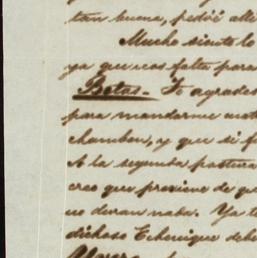 tan buena, pedré alte
Mucho siento lo
ya que eso falta para
Betas.- Te agrades
para mandarme
chamban, y que si f
A la segunda postura
creo que proviene de qu
no duran nada. Ya te
dichoso Echenique debe